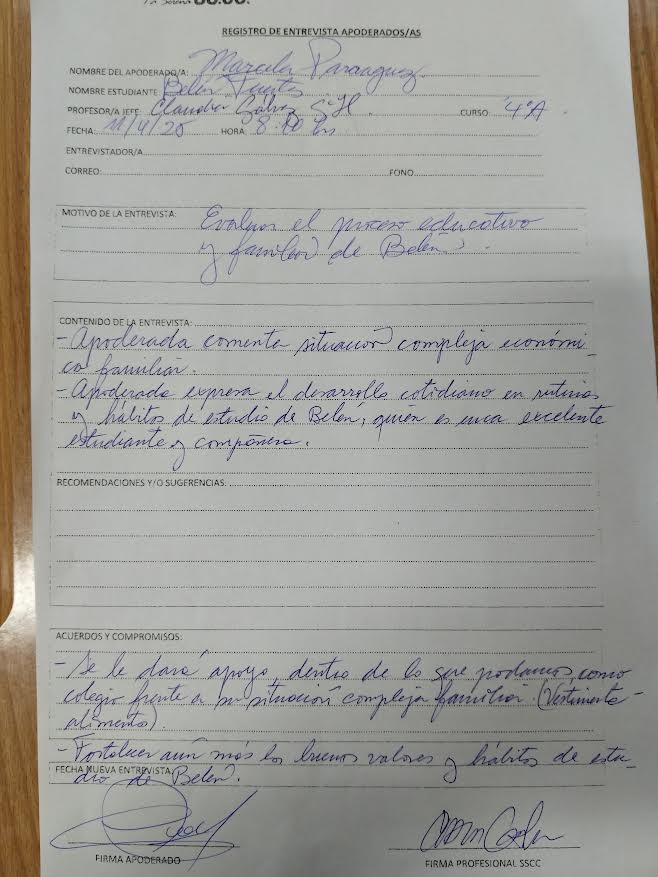 La Serena SS.CC.
REGISTRO DE ENTREVISTA APODERADOS/AS
NOMBRE DEL APODERADO/A: Marcela Paraguez
NOMBRE ESTUDIANTE: Belén Fuertes
PROFESOR/A JEFE: Claudia Gálvez CURSO: 4°A
FECHA: 11/4/25 HORA: 8: hrs
ENTREVISTADOR/A
CORREO: FONO
MOTIVO DE LA ENTREVISTA: Evaluar el proceso educativo
y familiar de Belén.
CONTENIDO DE LA ENTREVISTA:
- Apoderada comenta situación compleja económi-
ca familiar.
- Apoderada expresa el desarrollo cotidiano en rutinas
y hábitos de estudio de Belén, quien es una excelente
estudiante y compañera.
RECOMENDACIONES Y/O SUGERENCIAS:
ACUERDOS Y COMPROMISOS:
- Se le dará apoyo, dentro de lo que podamos, como
colegio frente a su situación compleja familiar (Vestimenta -
alimento).
- Fortalecer aún más los buenos valores y hábitos de estu-
FECHA NUEVA ENTREVISTA
dio de Belén.
FIRMA APODERADO
FIRMA PROFESIONAL SSCC